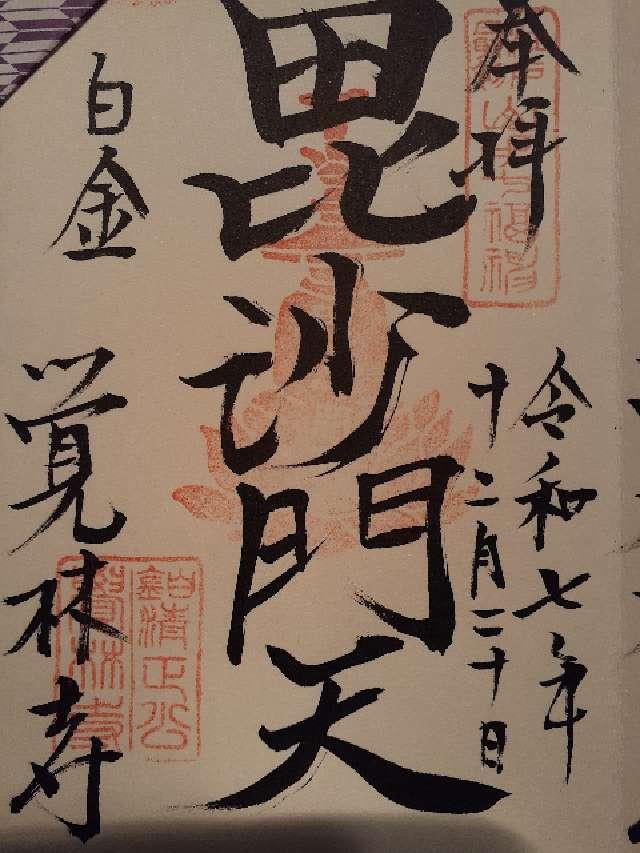 奉拝
令和七年
十二月二十日
毘沙門天
白金
覚林寺
清正公
覺林寺